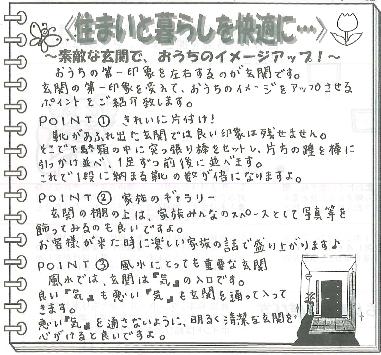 《住まいと暮らしを快適に…》
～素敵な玄関で、おうちのイメージアップ！～
おうちの第一印象を左右するのが玄関です。
玄関の第一印象を変えて、おうちのイメージをアップさせる
ポイントをご紹介致します。
POINT① きれいに片付け！
靴があふれ出た玄関では良い印象は残せません。
そこで下駄箱の中に突っ張り棒をセットし、片方の踵を棒に
引っかけ並べ、1足ずつ前後に並べます。
これで1段に納まる靴の数が倍になりますよ。
POINT② 家族のギャラリー
玄関の棚の上は、家族みんなのスペースとして写真等を
飾ってみるのも良いですよ。
お客様が来た時に楽しい家族の話で盛り上がりますよ♪
POINT③ 風水にとっても重要な玄関
風水では、玄関は『気』の入口です。
良い『気』も悪い『気』も玄関を通って入って
きます。
悪い『気』を通さないように、明るく清潔な玄関を
心がけると良いですよ。